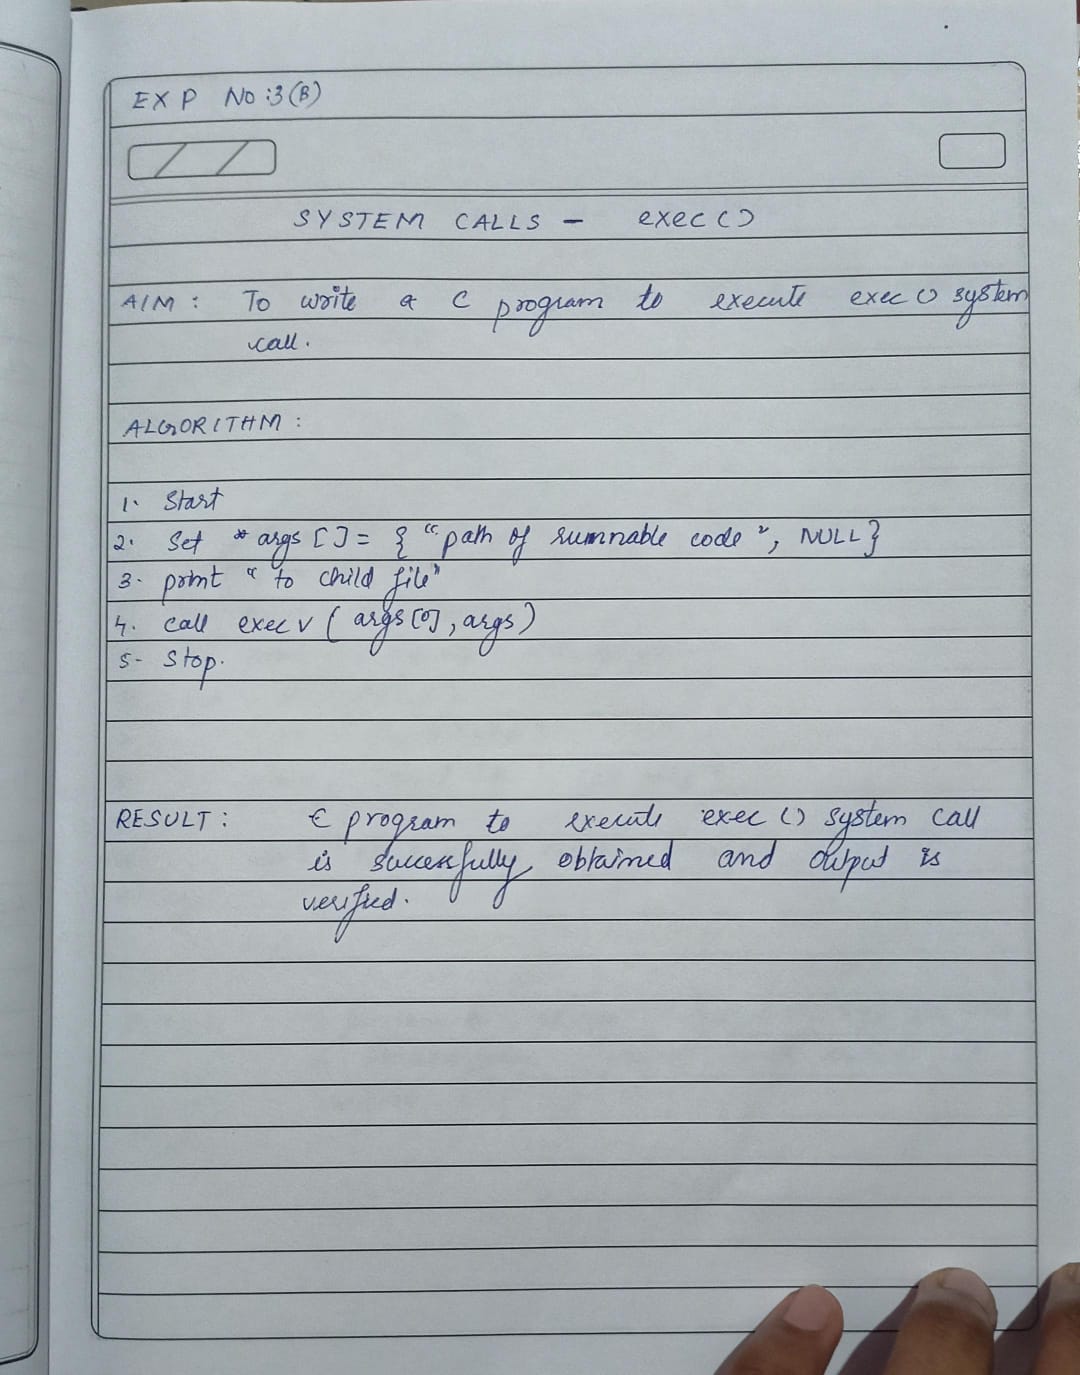 EXP NO:3(B)
SYSTEM CALLS - exec()
AIM: To write a C program to execute exec() system
call.
ALGORITHM:
1. Start
2. Set *args[]={"path of runnable code", NULL}
3. print "to child file"
4. call execv(args[0],args)
5- Stop.
RESULT: C program to execute exec() system call
is successfully obtained and output is
verified.